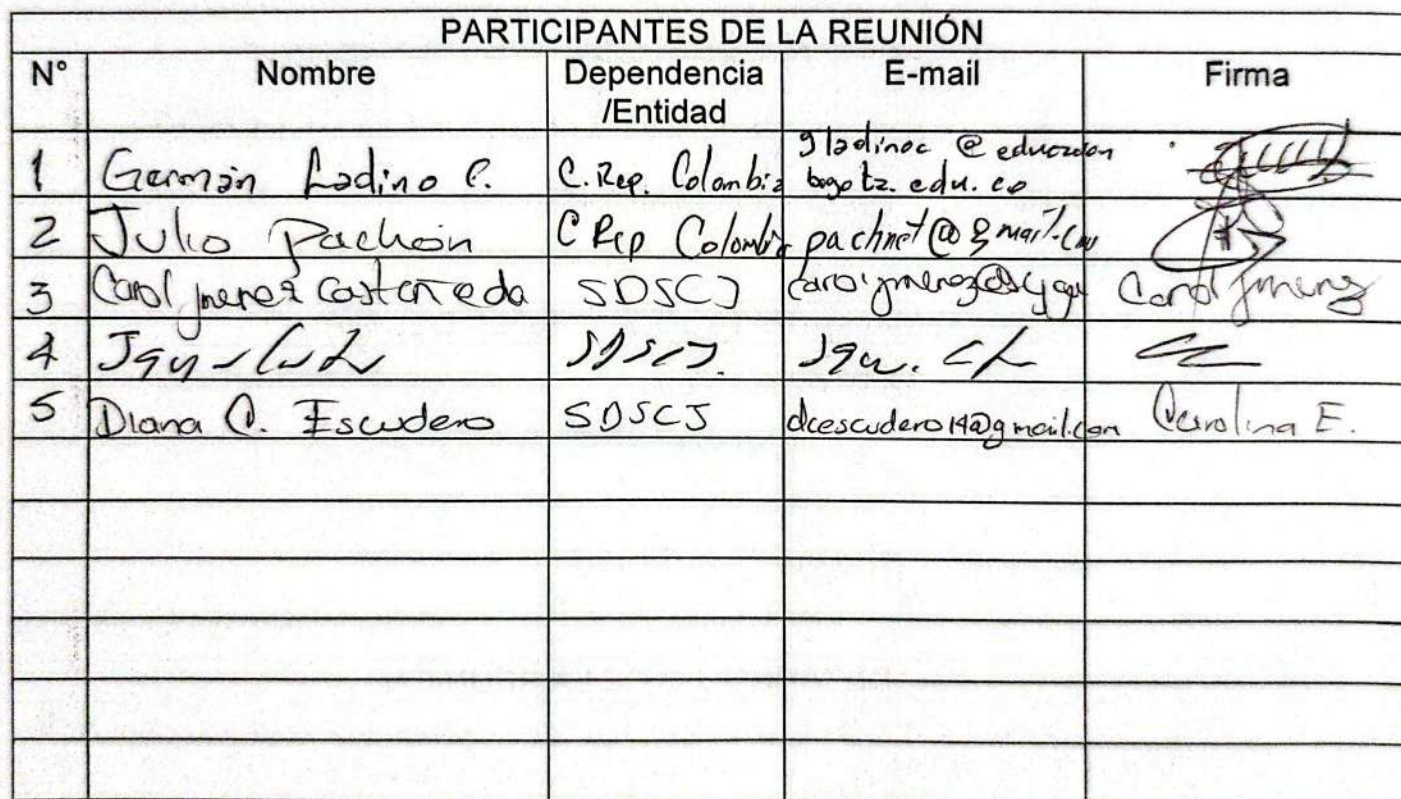 PARTICIPANTES DE LA REUNIÓN
N° Nombre Dependencia /Entidad E-mail Firma
1 Germán Ladino C. C. Rep. Colombia gladinoc @ educacion
bogota. edu. co
2 Julio Pachón C Rep Colombia pachnet@gmail.com
3 Carol Jimenez Castañeda SDSCJ Carol Jimenez
4 SDSCJ.
5 Diana C. Escudero SDSCJ dcescudero14@gmail.com Carolina E.